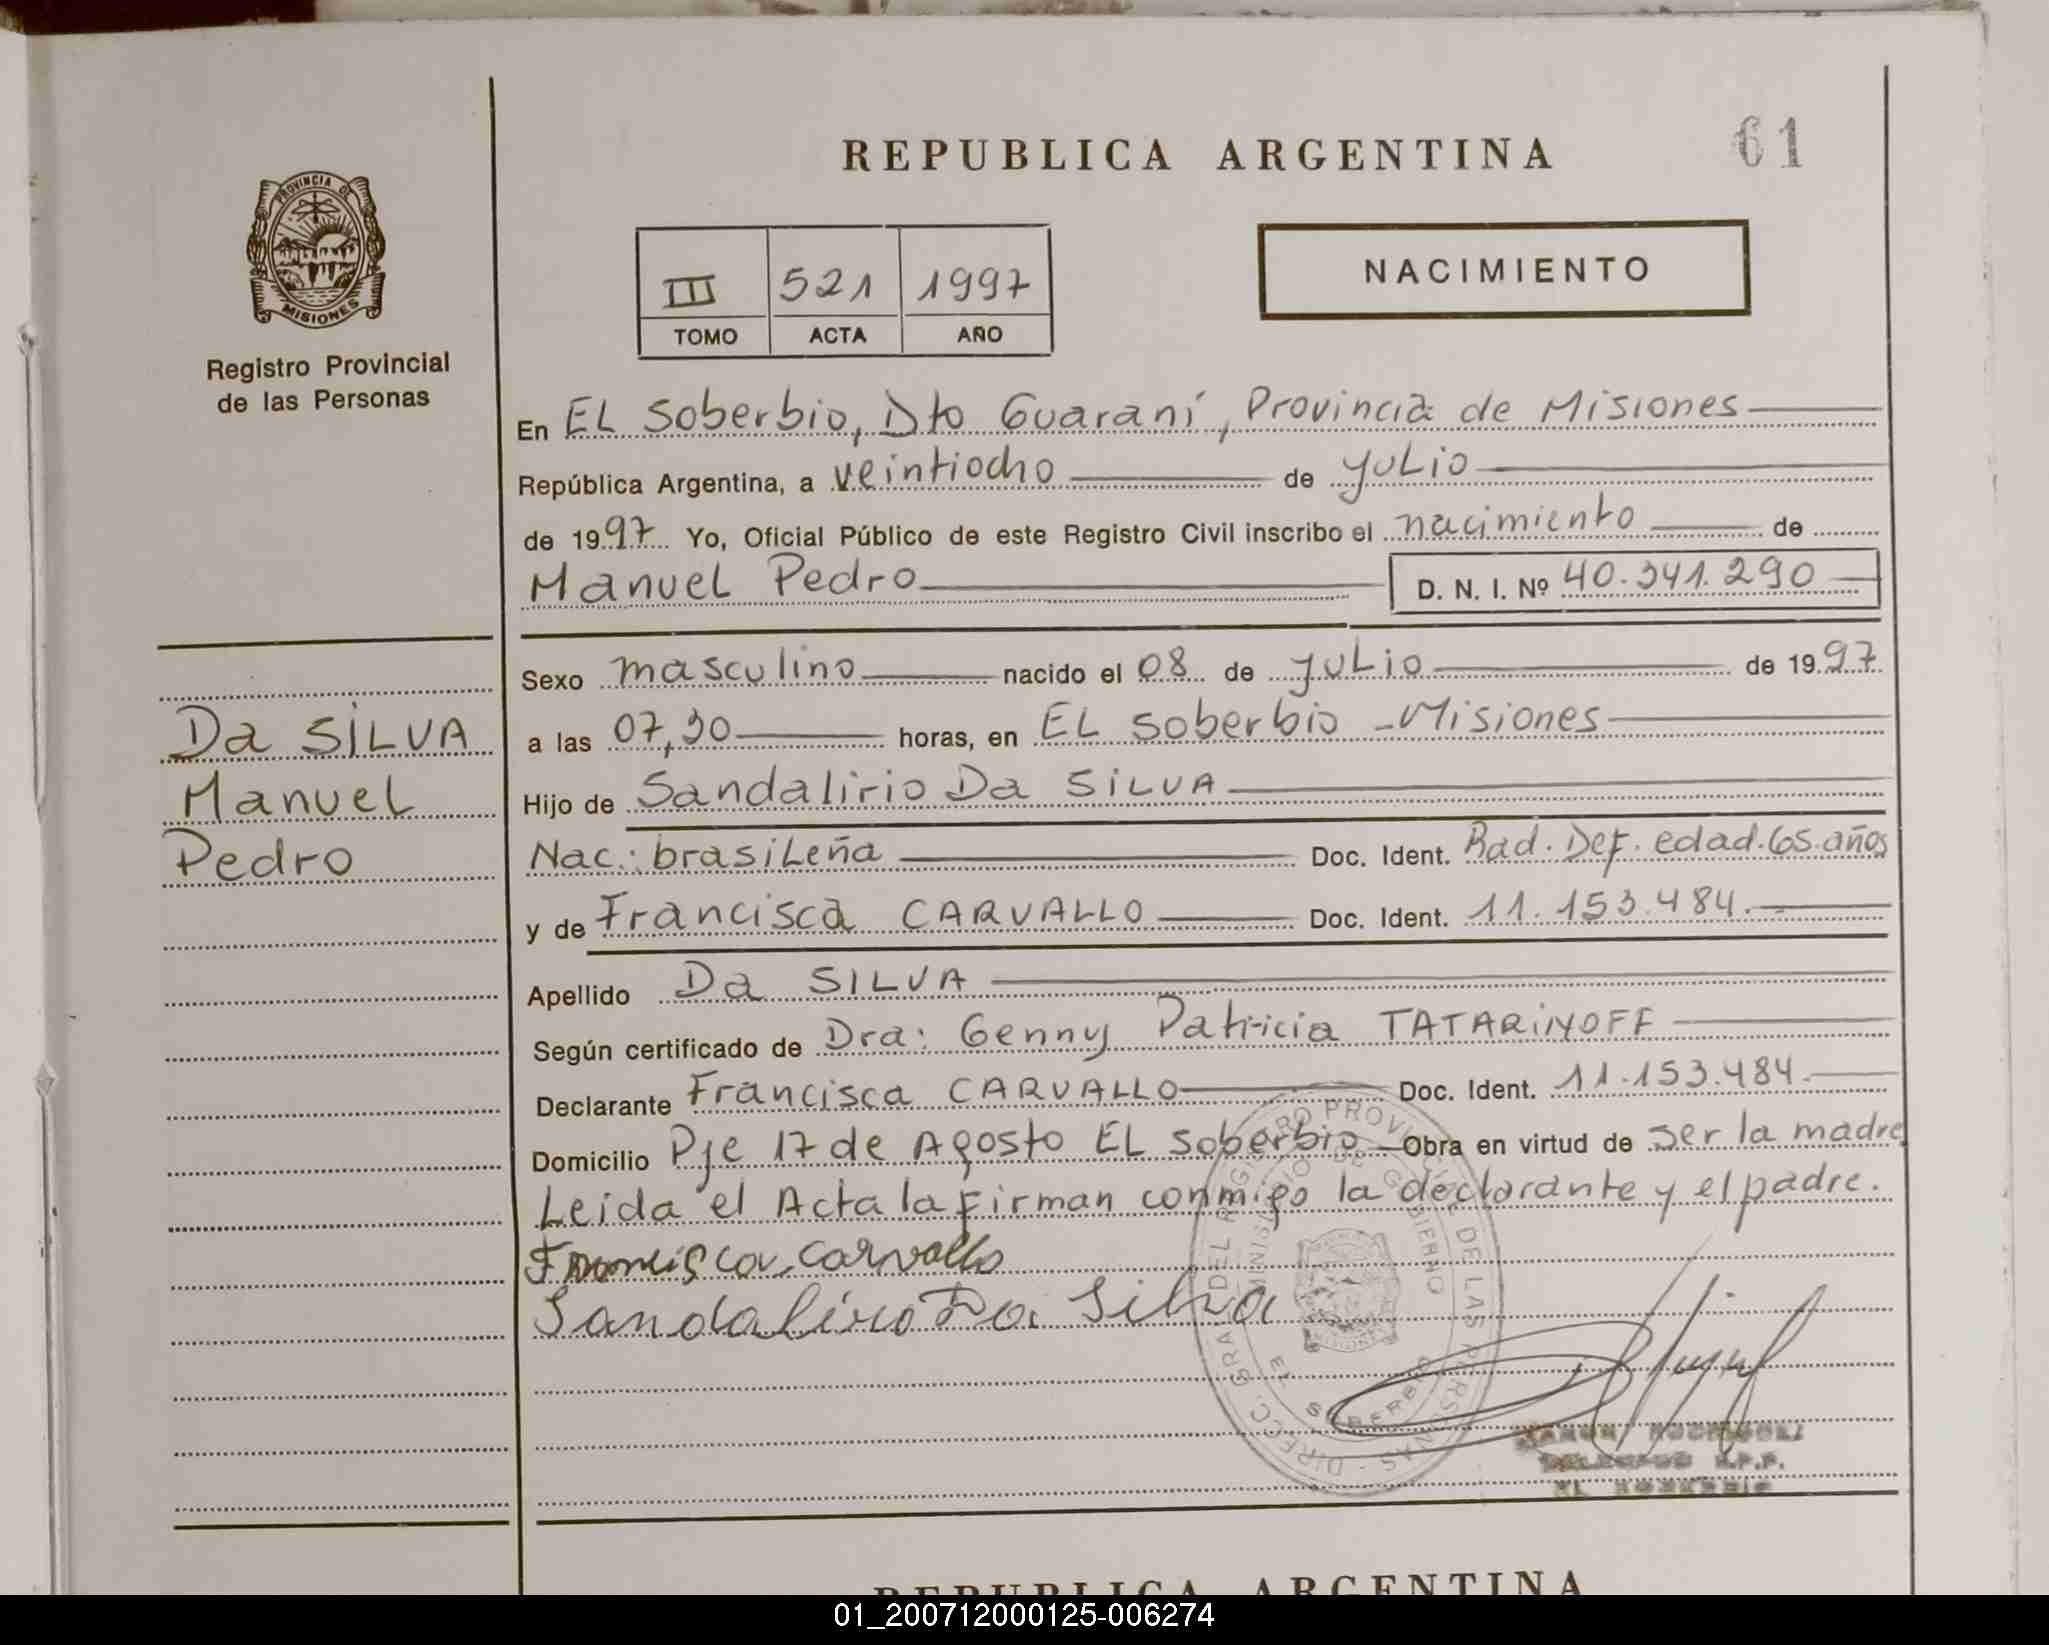 REPUBLICA ARGENTINA
61
PROVINCIA DE
MISIONES
Registro Provincial
de las Personas
III 521 1997
TOMO ACTA AÑO
NACIMIENTO
En EL Soberbio, Dto Guaraní, Provincia de Misiones
República Argentina, a veintiocho de JULio
de 1997 Yo, Oficial Público de este Registro Civil inscribo el nacimiento de
Manuel Pedro D. N. I. Nº 40.341.290
Sexo masculino nacido el 08 de JULio de 1997
a las 07,30 horas, en EL Soberbio - Misiones
Hijo de Sandalirio Da SiLVA
Nac.: brasiLeña Doc. Ident. Rad. Def. edad. 65 años
y de Francisca CARVALLO Doc. Ident. 11.153.484.-
Apellido Da SILVA
Según certificado de Dra: Genny Patricia TATARiNOFF
Declarante Francisca CARVALLO Doc. Ident. 11.153.484.
Domicilio Pje 17 de Agosto EL Soberbio Obra en virtud de ser la madre
Leida el Acta la Firman conmigo la declarante y el padre.
Francisca Carvallo
Sandaliro Da Silva
Da SiLVA
Manuel
Pedro
DIRECC. GRAL. DEL REGISTRO PROVINCIAL DE LAS PERSONAS
MINISTERIO DE GOBIERNO
EL SOBERBIO
MISIONES
RODRIGUEZ
DELEGADO R.P.P.
EL SOBERBIO
REPUBLICA ARGENTINA
01_200712000125-006274